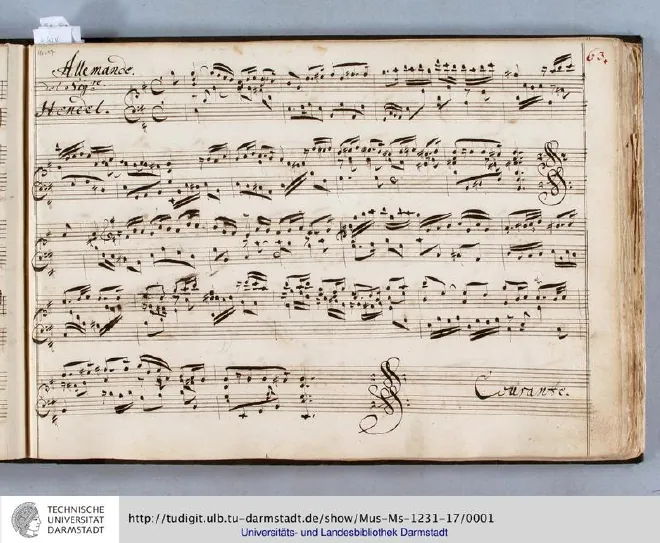 63.
Allemande.
del Sigre
Hendel.
Courante.
TECHNISCHE
UNIVERSITÄT
DARMSTADT
http://tudigit.ulb.tu-darmstadt.de/show/Mus-Ms-1231-17/0001
Universitäts- und Landesbibliothek Darmstadt